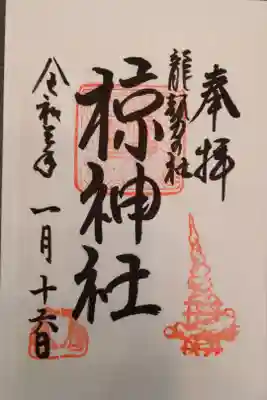 奉拝
龍勢の社
椋神社
令和三年一月十六日